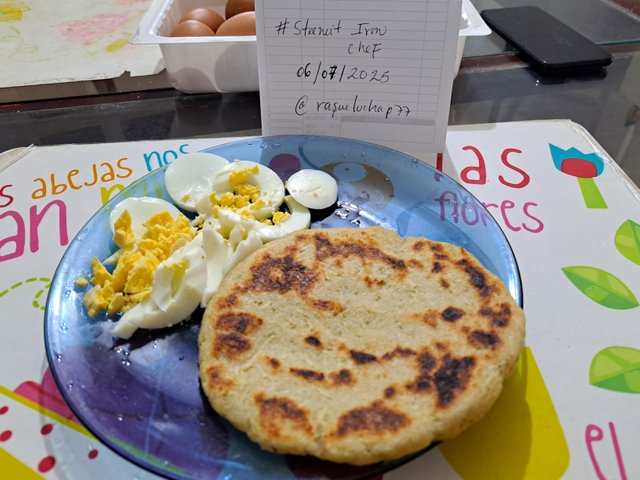 #Steemit Iron
Chef
06/07/2025
@raqueluchap77
s abejas nos
an
Las
flores
el